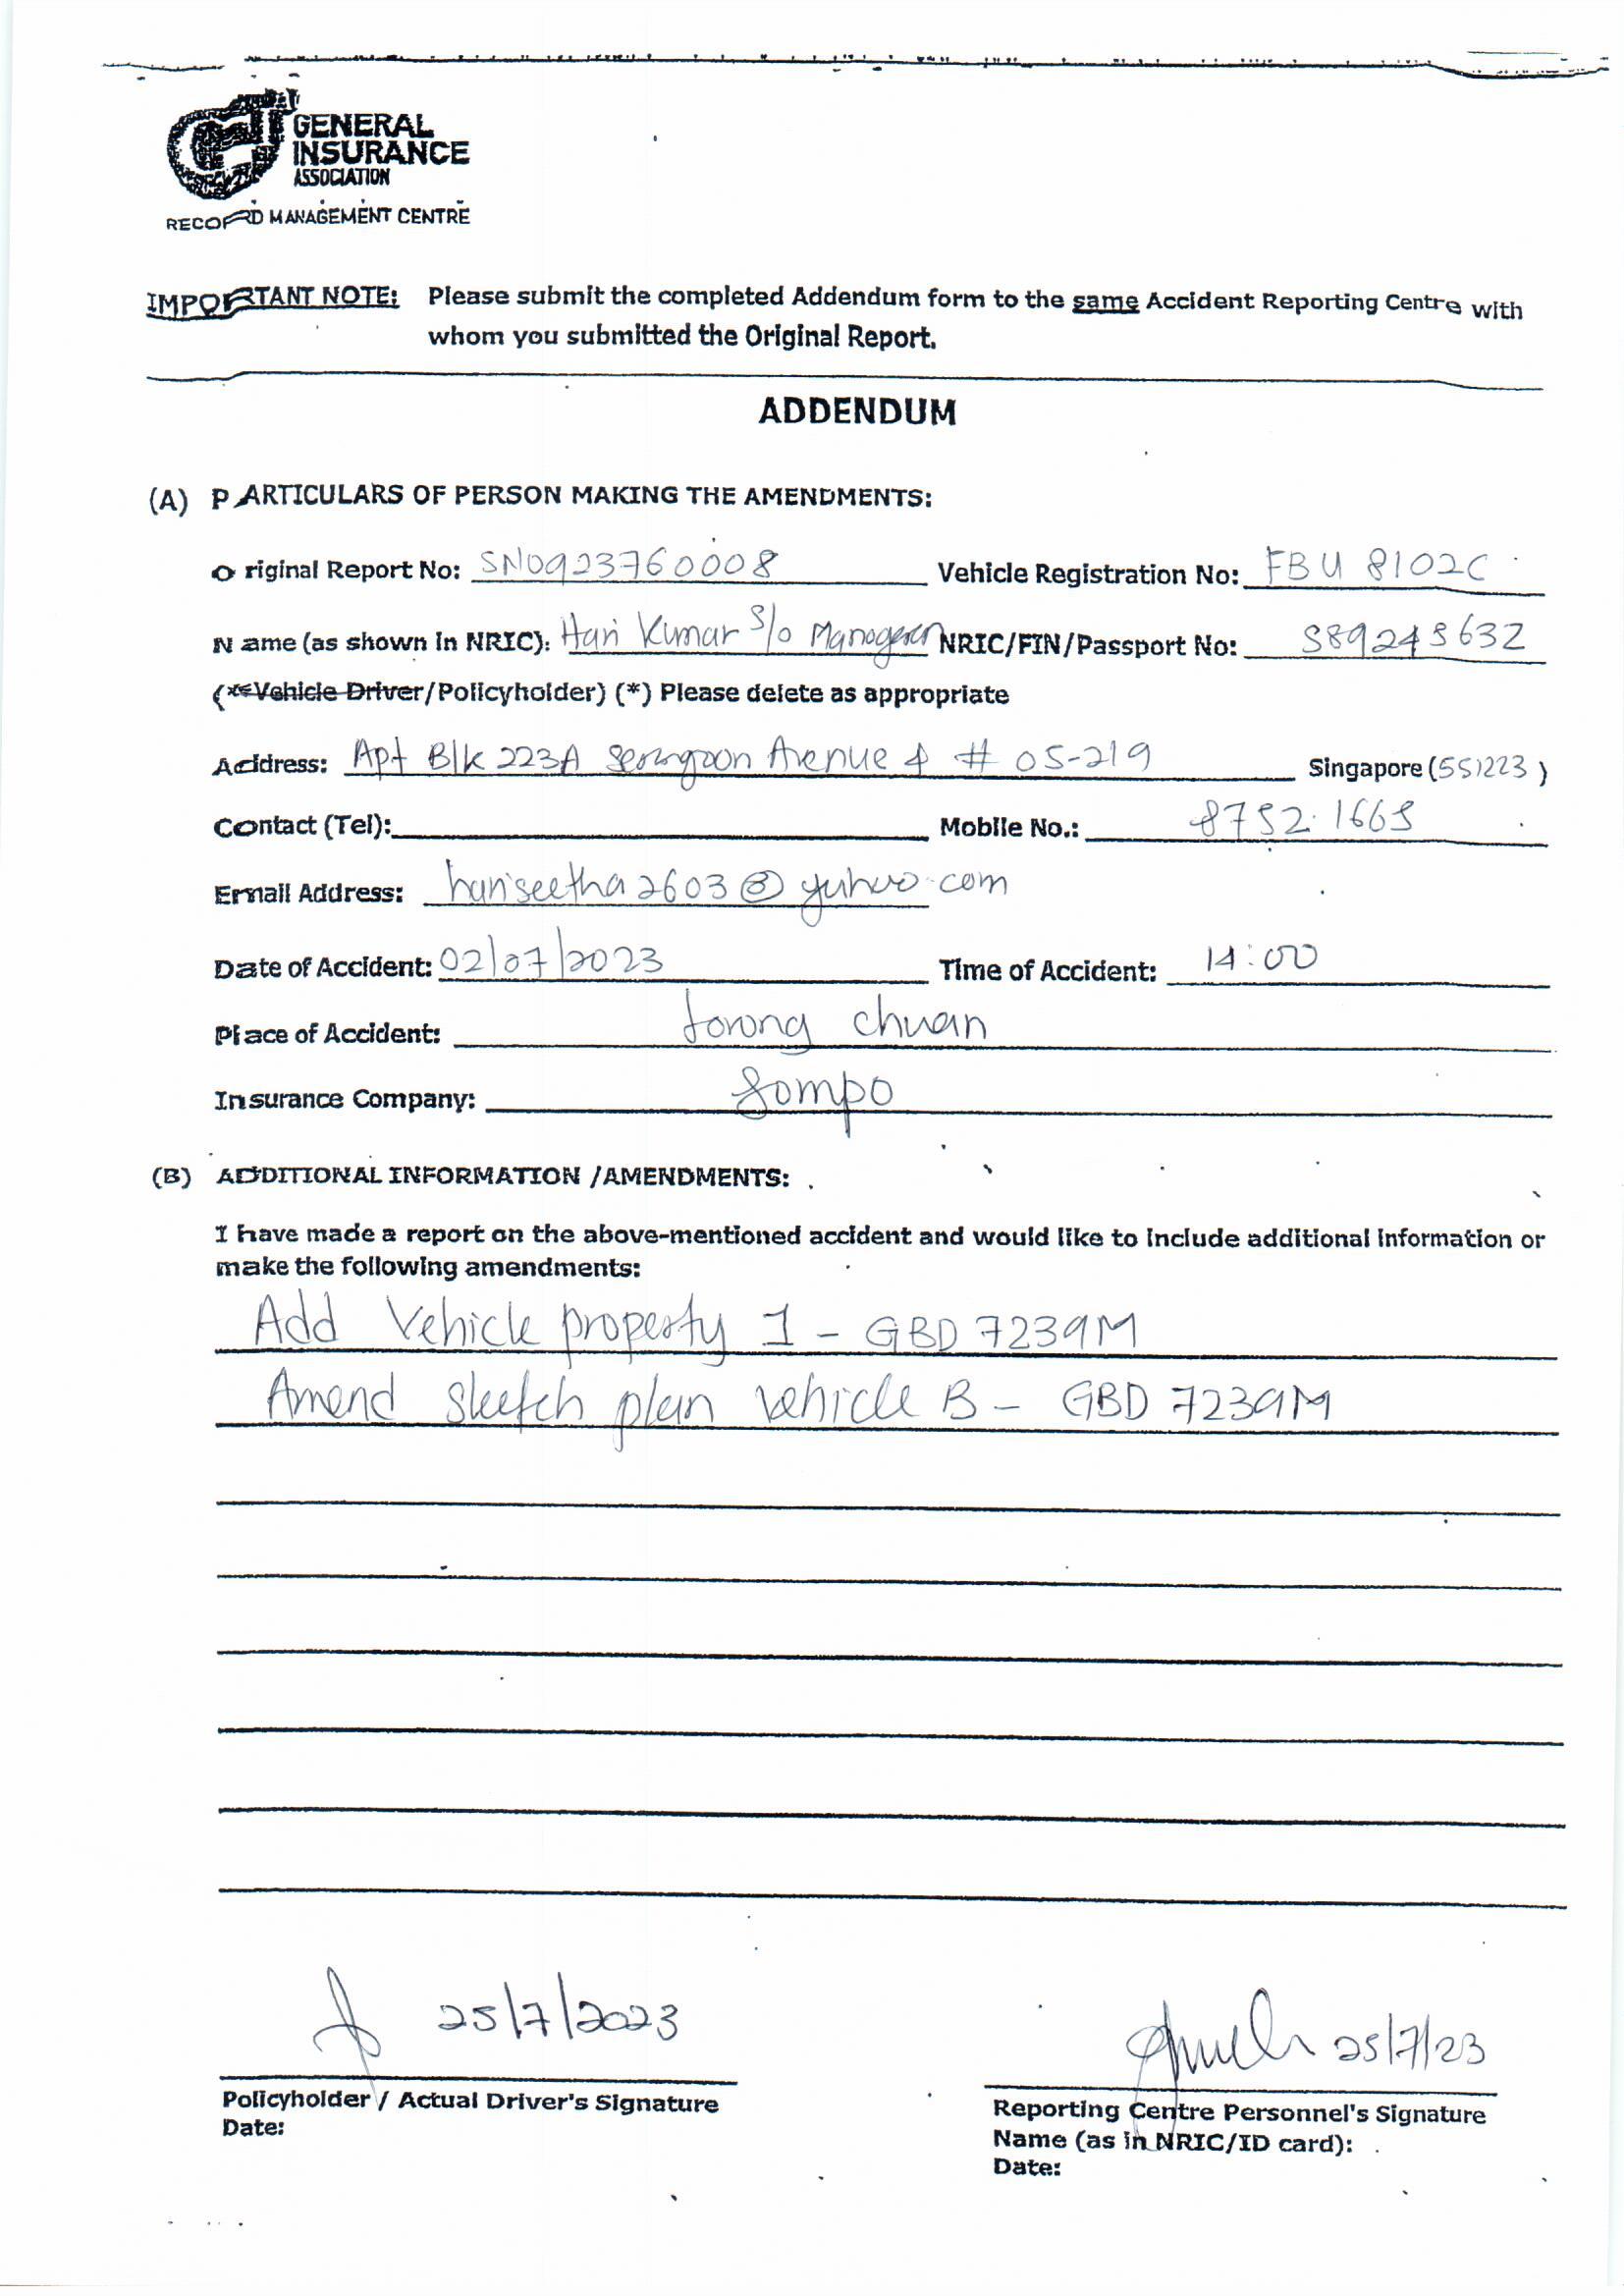 GENERAL
INSURANCE
ASSOCIATION
RECORD MANAGEMENT CENTRE
IMPORTANT NOTE: Please submit the completed Addendum form to the same Accident Reporting Centre with
whom you submitted the Original Report.
ADDENDUM
(A) PARTICULARS OF PERSON MAKING THE AMENDMENTS:
Original Report No: SN0923760008 Vehicle Registration No: FBU 8102C
Name (as shown in NRIC): Hari Kumar S/o NRIC/FIN/Passport No:
(*Vehicle Driver/Policyholder) (*) Please delete as appropriate
Address: Apt Blk 223A Serangoon Avenue 4 # 05-219 Singapore (551223)
Contact (Tel): Mobile No.:
Email Address: hariseetha2603@yahoo.com
Date of Accident: 02/07/2023 Time of Accident: 14:00
Place of Accident: Lorong chuan
Insurance Company: Sompo
(B) ADDITIONAL INFORMATION /AMENDMENTS:
I have made a report on the above-mentioned accident and would like to include additional information or
make the following amendments:
Add Vehicle property 1 - GBD 7239M
Amend sketch plan vehicle B - GBD 7239M
25/7/2023 25/7/23
Policyholder / Actual Driver's Signature
Date:
Reporting Centre Personnel's Signature
Name (as in NRIC/ID card):
Date: